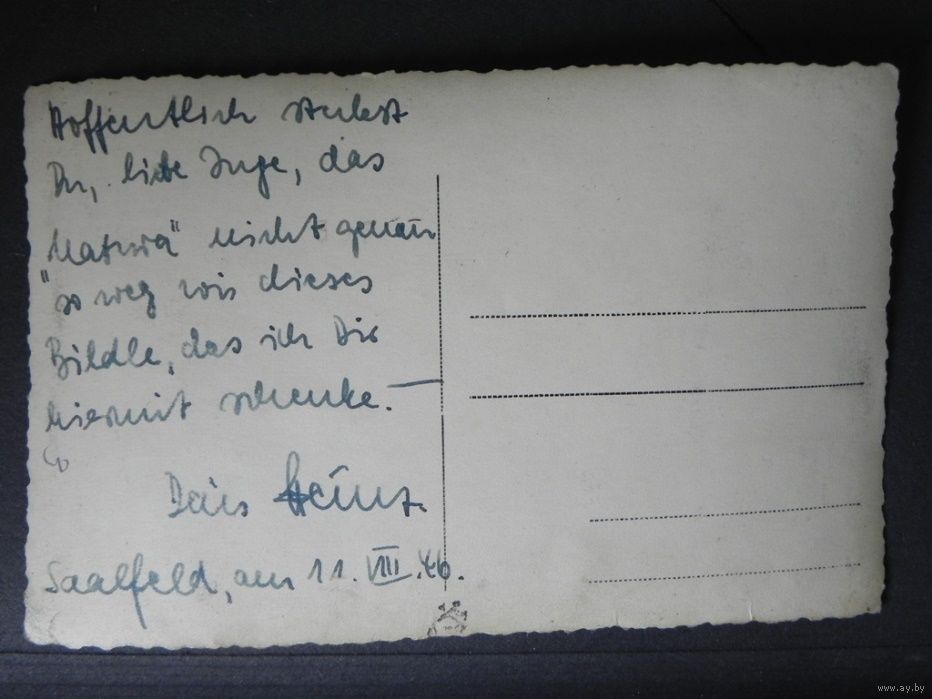 Hoffentlich stehst
Du, liebe Inge, das
"Natura" nicht genau
so weg wie dieses
Bildle, das ich Dir
hiermit schenke. —
Dein Heinz.
Saalfeld, am 11. VIII. 46.
www.ay.by